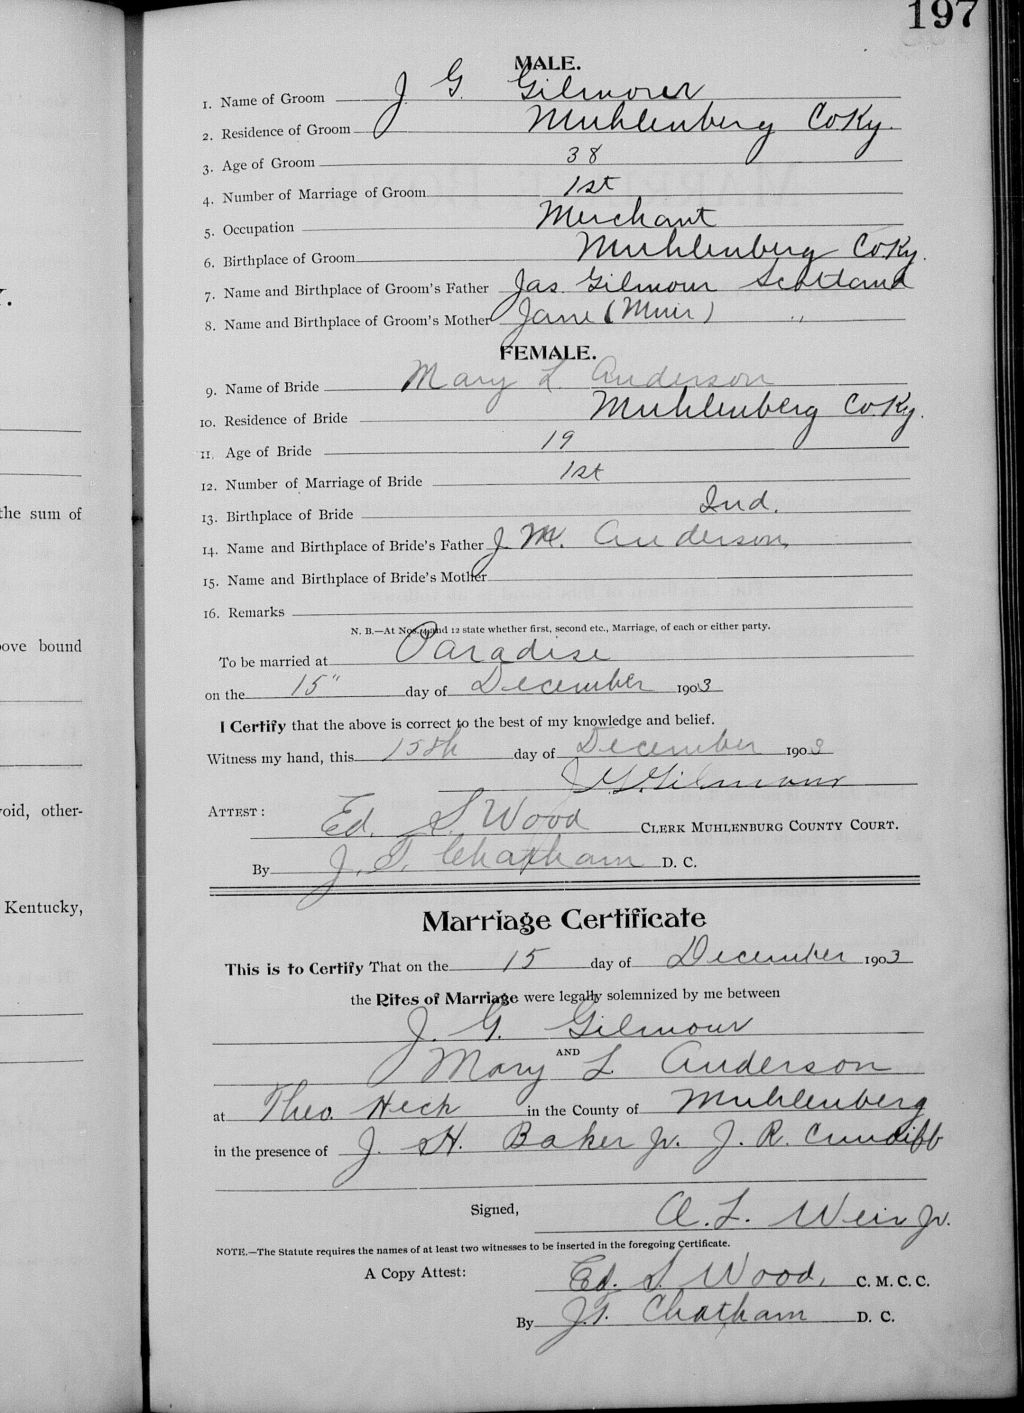 197
MALE.
1. Name of Groom J G Gilmour
2. Residence of Groom Muhlenberg Co Ky.
3. Age of Groom 38
4. Number of Marriage of Groom 1st
5. Occupation Merchant
6. Birthplace of Groom Muhlenberg Co Ky.
7. Name and Birthplace of Groom's Father Jas. Gilmour Scotland
8. Name and Birthplace of Groom's Mother Jane (Muir) "
FEMALE.
9. Name of Bride Mary L. Anderson
10. Residence of Bride Muhlenberg Co. Ky.
11. Age of Bride 19
12. Number of Marriage of Bride 1st
13. Birthplace of Bride Ind.
14. Name and Birthplace of Bride's Father J. M. Anderson
15. Name and Birthplace of Bride's Mother
16. Remarks
N. B.—At Nos. 4 and 12 state whether first, second etc., Marriage, of each or either party.
To be married at Paradise
on the 15" day of December 1903
I Certify that the above is correct to the best of my knowledge and belief.
Witness my hand, this 15th day of December 1903
J. G. Gilmour
ATTEST:
Ed. S. Wood CLERK MUHLENBURG COUNTY COURT.
By J. T. Chatham D. C.
Marriage Certificate
This is to Certify That on the 15 day of December 1903
the Rites of Marriage were legally solemnized by me between
J. G. Gilmour
AND
Mary L Anderson
at Theo. Heck in the County of Muhlenberg
in the presence of J. H. Baker Jr. J. R. Cundiff
Signed, A. L. Weir Jr.
NOTE.—The Statute requires the names of at least two witnesses to be inserted in the foregoing Certificate.
A Copy Attest: Ed. S. Wood, C. M. C. C.
By J. T. Chatham D. C.
the sum of
ove bound
void, other-
Kentucky,